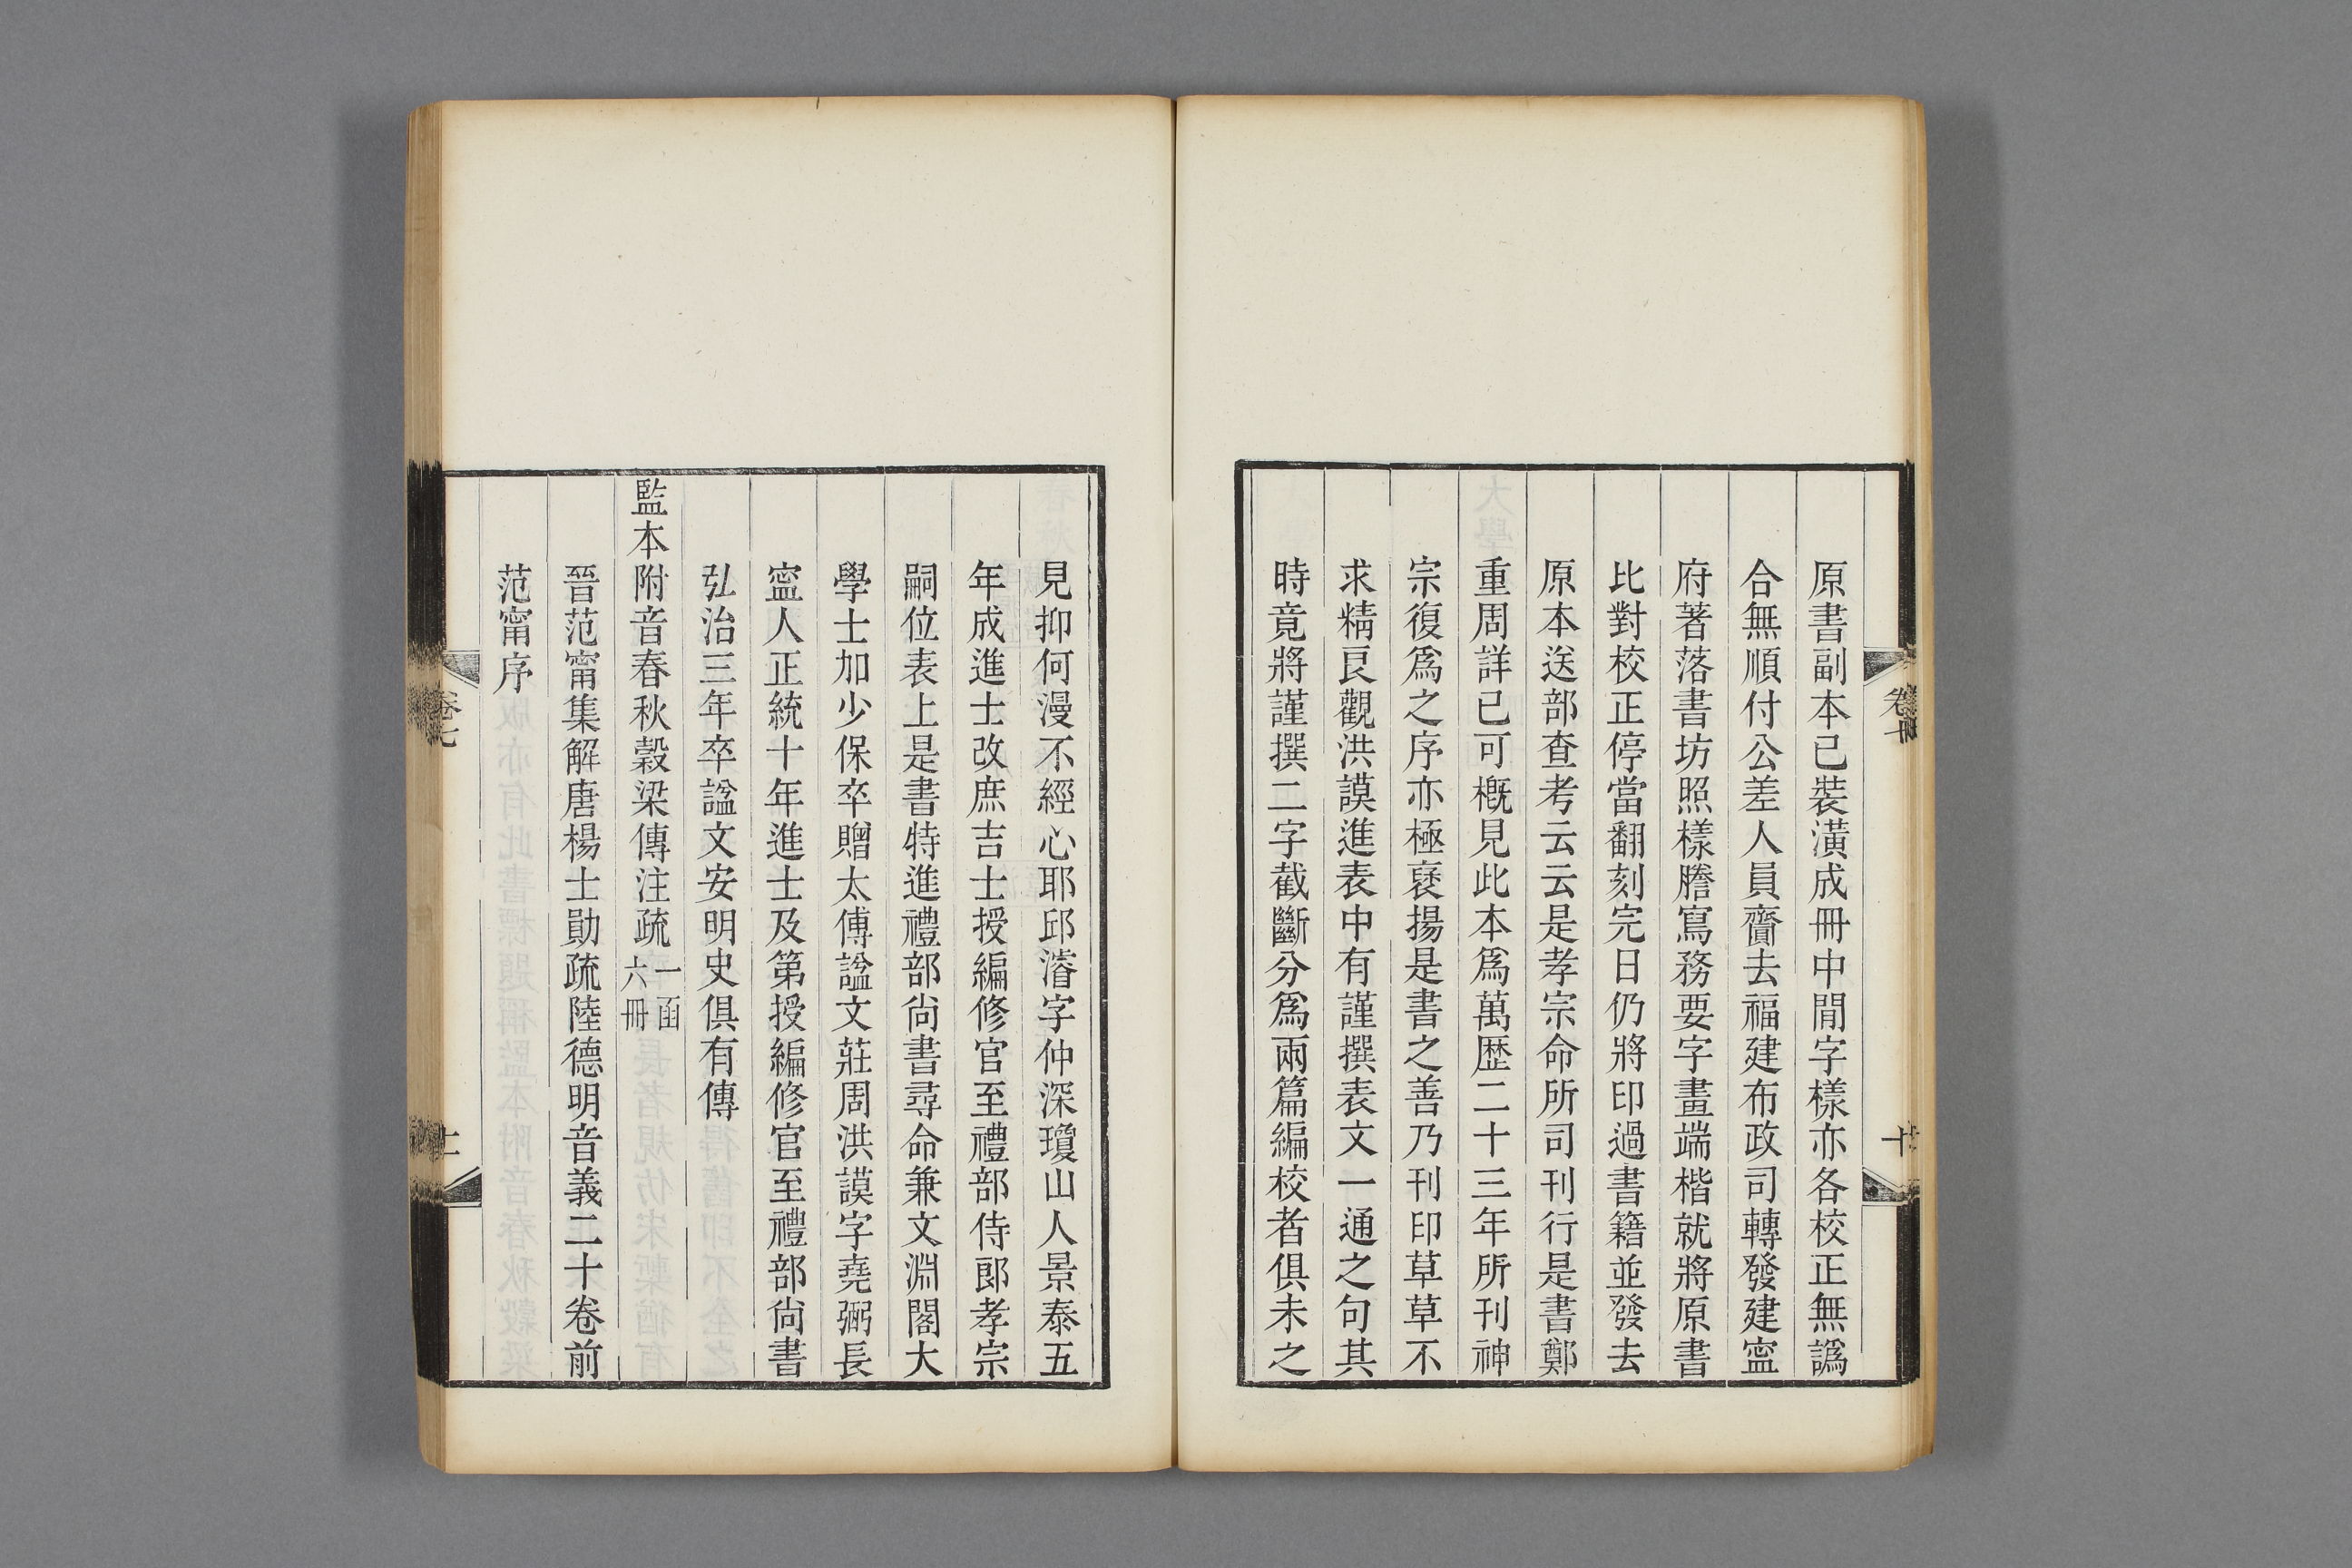 原書副本已裝潢成冊中閒字樣亦各校正無譌
合無順付公差人員齎去福建布政司轉發建寍
府著落書坊照樣謄寫務要字畫端楷就將原書
比對校正停當翻刻完日仍將印過書籍並發去
原本送部查考云云是孝宗命所司刊行是書鄭
重周詳已可槪見此本爲萬歴二十三年所刊神
宗復爲之序亦極襃揚是書之善乃刊印草草不
求精良觀洪謨進表中有謹撰表文一通之句其
時竟將謹撰二字截斷分爲兩篇編校者俱未之
見抑何漫不經心耶邱濬字仲深瓊山人景泰五
年成進士改庶吉士授編修官至禮部侍郎孝宗
嗣位表上是書特進禮部尙書尋命兼文淵閣大
學士加少保卒贈太傅諡文莊周洪謨字堯弼長
寍人正統十年進士及第授編修官至禮部尙書
弘治三年卒諡文安明史俱有傳
監本附音春秋穀梁傳注疏 一函 六冊
晉范甯集解唐楊士勛疏陸德明音義二十卷前
范甯序
卷七
十一